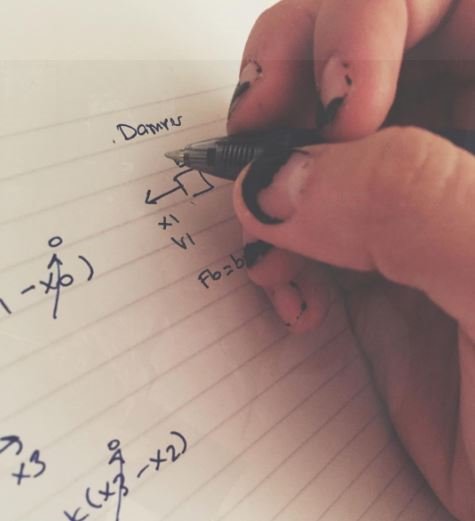 .Damper
x1
v1
Fb=b
0
1 - x0)
x3
0
k (x3 - x2)